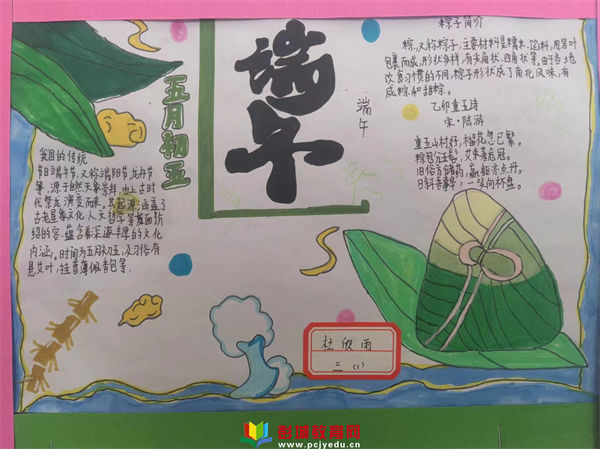 端午
端午
五月初五
我国的传统
节日端午节,又称端阳节,龙舟节
等,源于自然天象崇拜,由上古时
代祭龙演变而来,其起源涵盖了
古老星象文化,人文哲学等
绍的容,蕴含着深邃丰厚的文化
内涵,时间为五月初五,及习俗有
悬艾叶,挂菖蒲佩香包等.
粽子简介
粽,又称粽子,主要材料是糯米、馅料,用箬叶
裹而成,形状多样,有尖角状、四角状等。由于各地
饮食习惯的不同,粽子形状成了南北风味,有
咸粽和甜粽。
乙卯重五诗
宋·陆游
重五山村好,榴花忽已繁。
粽包分两髻,艾束著危冠。
旧俗方储药,羸躯亦点丹。
日斜吾事毕,一笑向杯盘。
杜欣雨
三(1)
彭城教育网
www.pcjyedu.cn